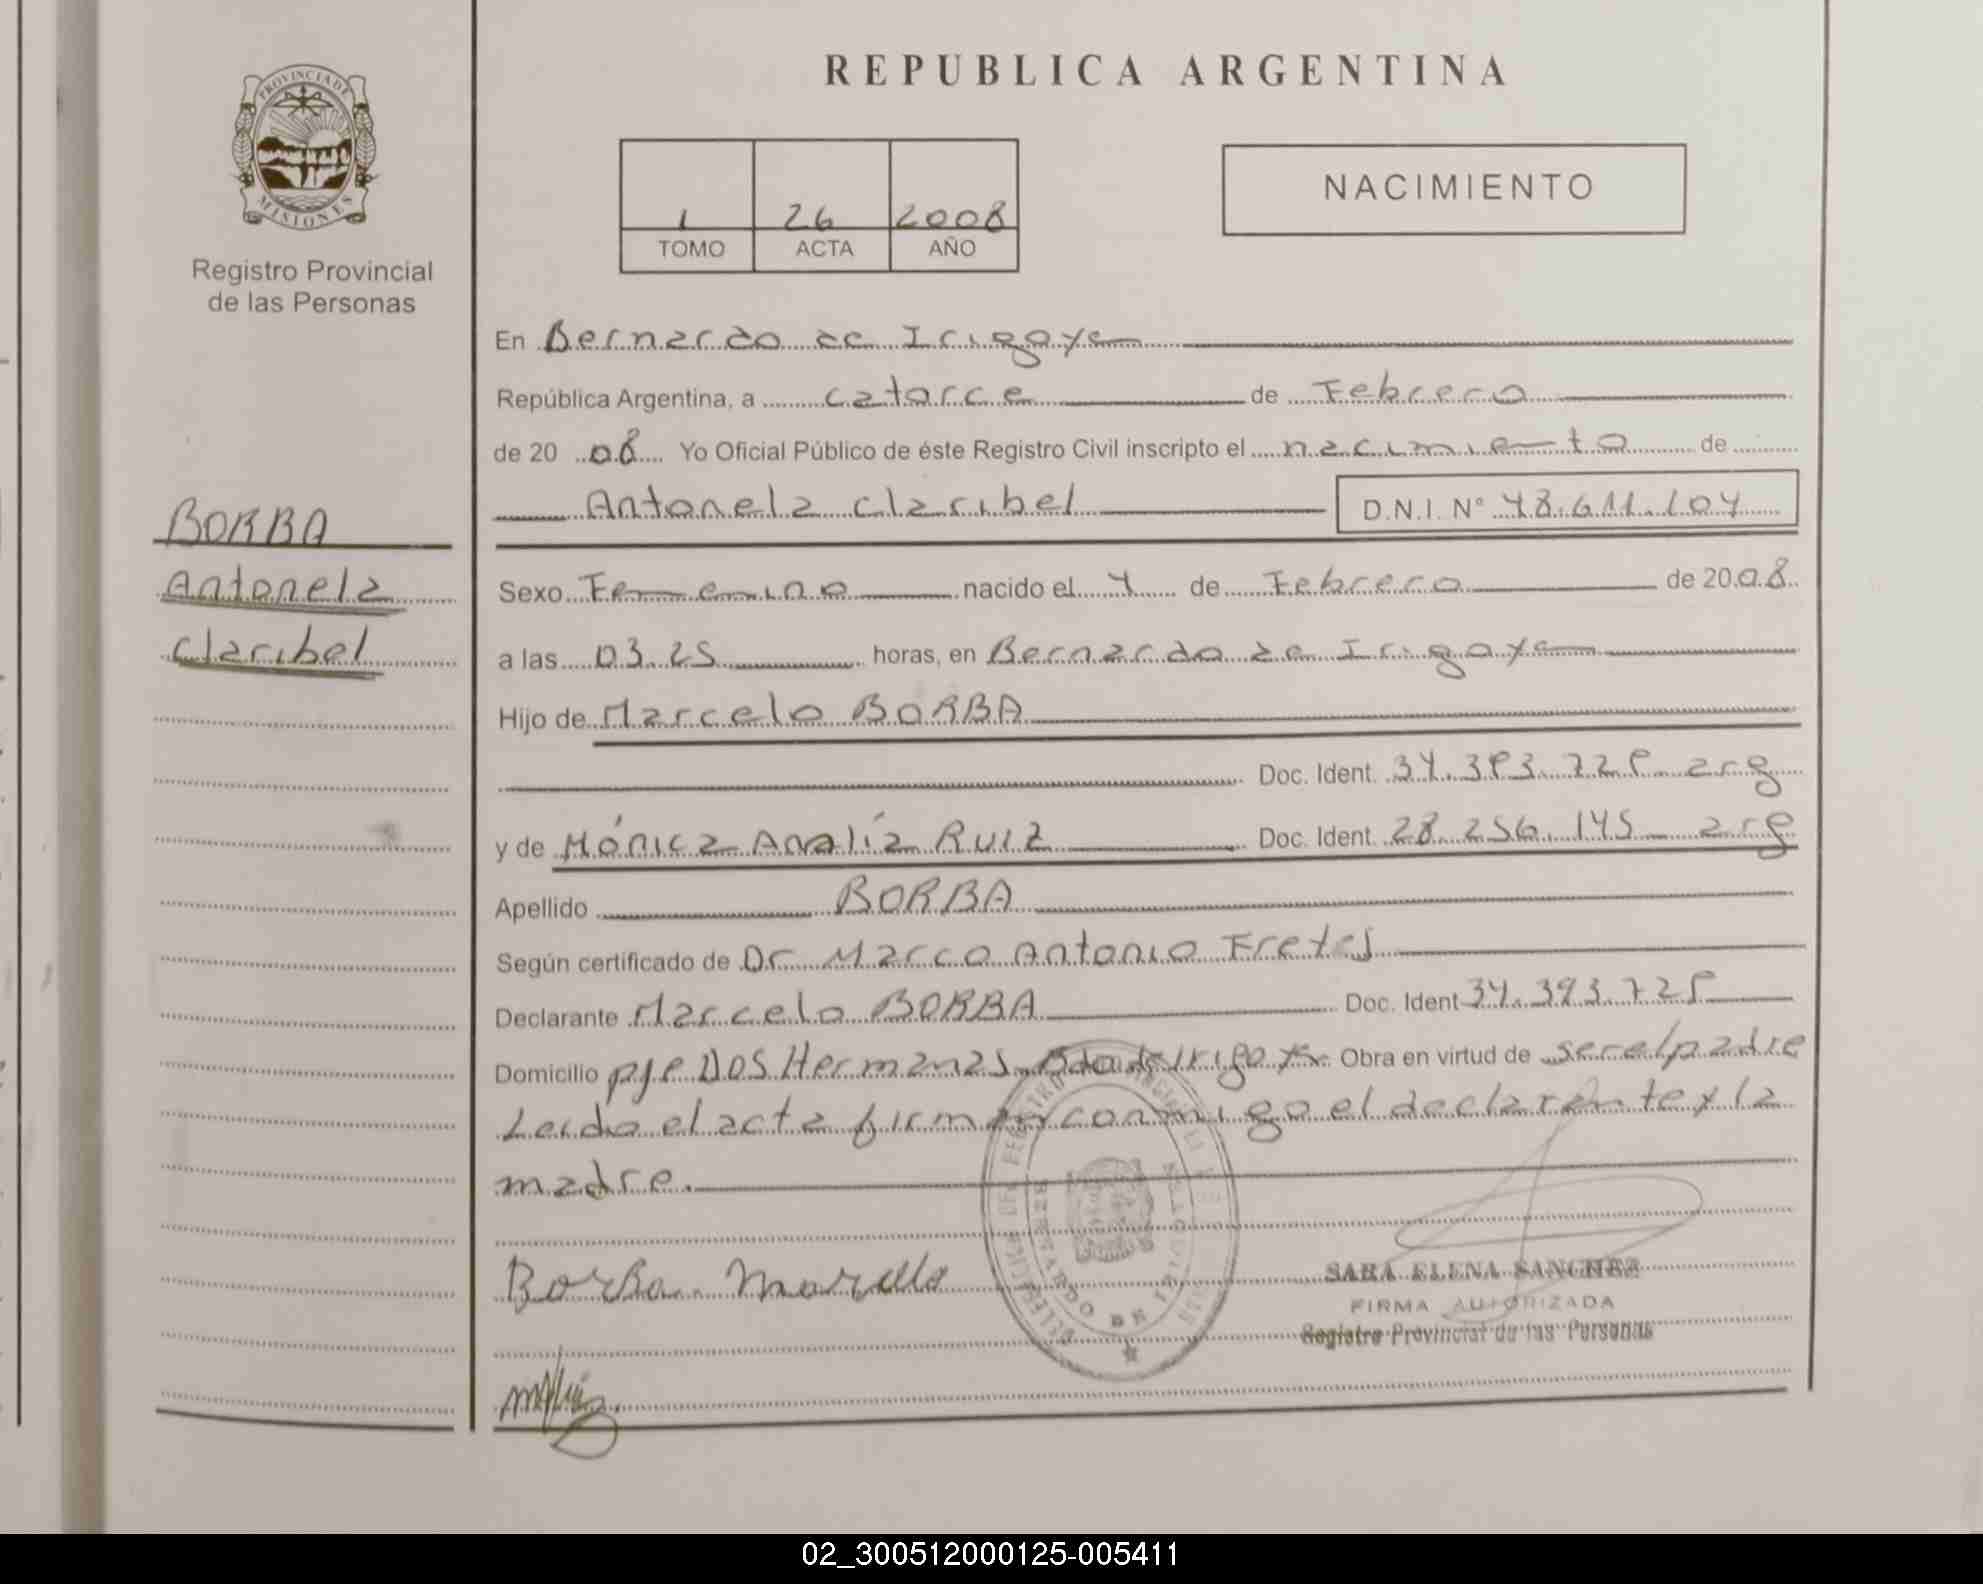 REPUBLICA ARGENTINA
PROVINCIA DE
MISIONES
Registro Provincial
de las Personas
1 26 2008
TOMO ACTA AÑO
NACIMIENTO
BORBA
Antonela
Claribel
En Bernardo de Irigoyen
República Argentina, a catorce de Febrero
de 20 08 Yo Oficial Público de éste Registro Civil inscripto el nacimiento de
Antonela Claribel D.N.I. Nº 48.611.104
Sexo Femenino nacido el 4 de Febrero de 20 08
a las 03.25 horas, en Bernardo de Irigoyen
Hijo de Marcelo BORBA
Doc. Ident. 34.393.729 arg
y de Mónica Analía Ruiz Doc. Ident. 28.256.145 arg
Apellido BORBA
Según certificado de Dr Marco Antonio Fretes
Declarante Marcelo BORBA Doc. Ident 34.393.729
Domicilio pje Dos Hermanas Bdo de Irigoyen Obra en virtud de ser el padre
Leido el acta firman conmigo el declarante y la
madre.
Borba Marcelo
SARA ELENA SANCHEZ
FIRMA AUTORIZADA
Registro Provincial de las Personas
BERNARDO DE IRIGOYEN
02_300512000125-005411